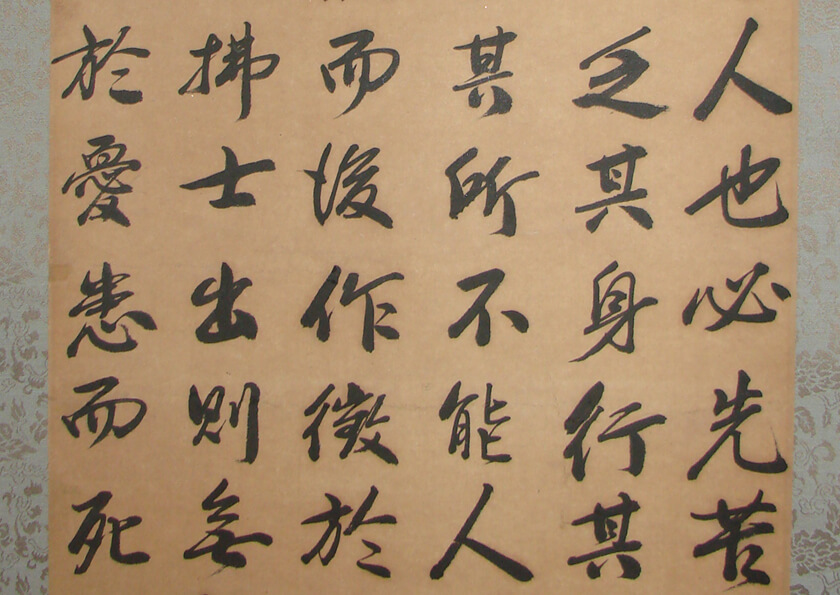 人也必先苦
乏其身行其
其所不能人
而後作徵於
拂士出則無
於憂患而死